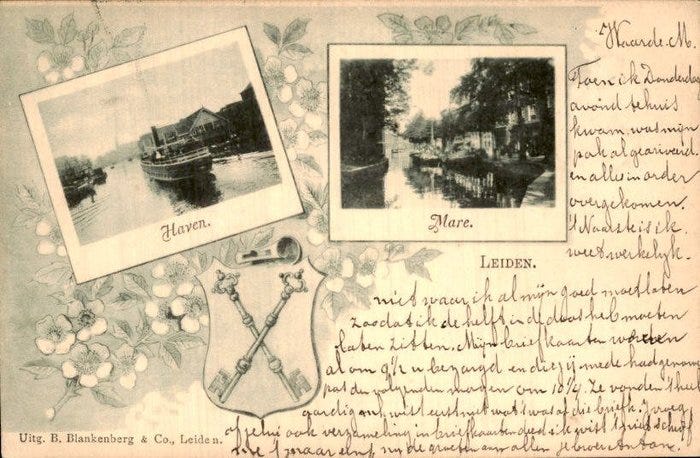 Haven.
Mare.
LEIDEN.
Uitg. B. Blankenberg & Co., Leiden.
Waarde M.
Toen ik Donderdag
avond tehuis
kwam, was mijn
pak al gearriveerd
en alles in order
overgekomen.
't Naarste is ik
weet werkelyk
niet waar ik al mijn goed moet laten
zoodat ik de helft in de doos heb moeten
laten zitten. Mijn briefkaarten worden
al om 9½ u bezorgd en die zij mede had genomen
pas den volgenden morgen om 10¼. Ze vonden 't heel
aardig wist eerst niet wat was of die briefk. vroeg
of jelui ook verzameling in briefkaarten
maar eens de groeten aan allen je broer Anton.